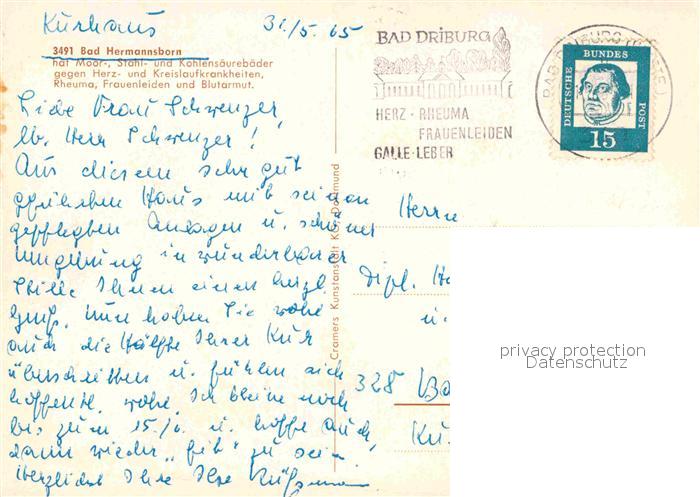 Kurhaus 31./5. 65
3491 Bad Hermannsborn
hat Moor-, Stahl- und Kohlensäurebäder
gegen Herz- und Kreislaufkrankheiten,
Rheuma, Frauenleiden und Blutarmut.
Liebe Frau Schwenzer,
lb. Herr Schwenzer!
Aus diesem sehr gut
geführten Haus mit seinen
gepflegten Anlagen u. schöner
Umgebung in wunderbarer
Stille Ihnen einen herzl.
Gruß. Nun haben Sie wohl
auch die Hälfte Ihrer Kur
überschritten u. fühlen sich
hoffentl. wohl. Ich bleibe noch
bis zum 15./6. u. hoffe auch,
dann wieder "fit" zu sein.
Herzlichst Ihre Ihre
Cramers Kunstanstalt KG, Dortmund
BAD DRIBURG
HERZ · RHEUMA
FRAUENLEIDEN
GALLE · LEBER
DEUTSCHE BUNDES POST
15
Herrn
Dipl.
u.
328 Ba
Ku
privacy protection
Datenschutz